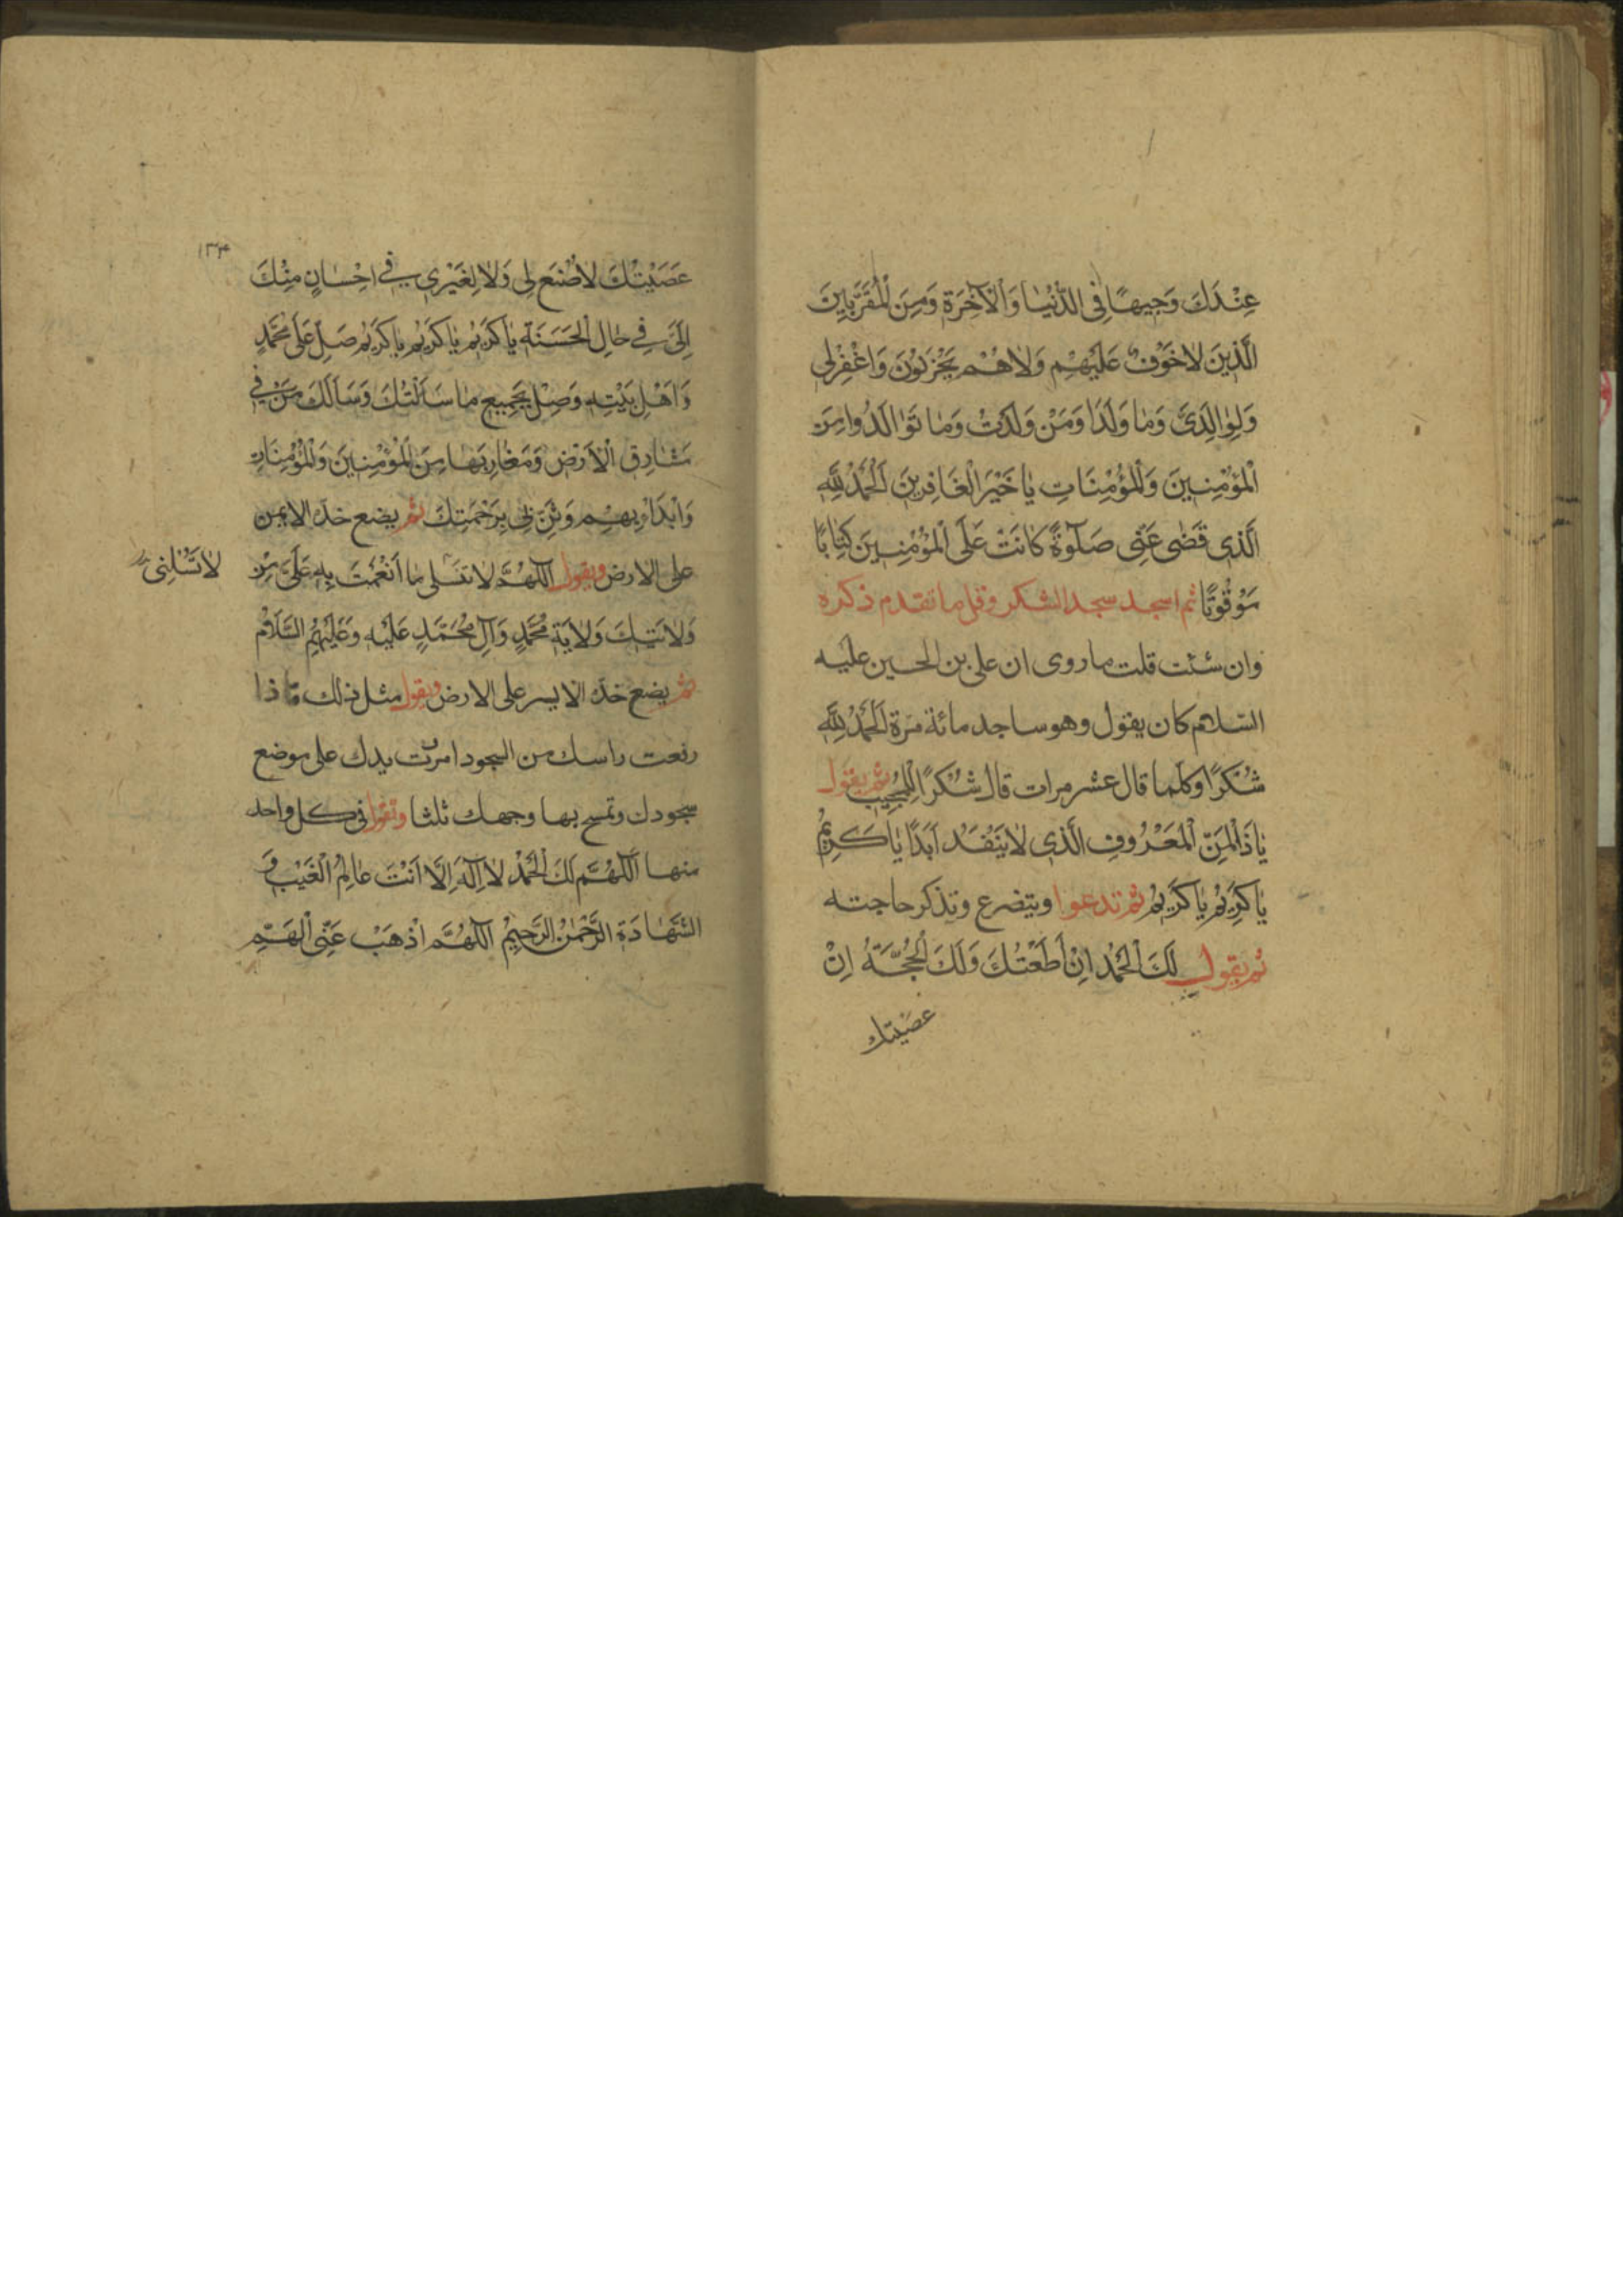 عِنْدَكَ وَجِيهًا فِى الدُّنْيٰا وَالْآخِرَةِ وَمِنَ الْمُقَرَّبِينَ
الَّذِينَ لٰا خَوْفٌ عَلَيْهِمْ وَلٰا هُمْ يَحْزَنُونَ وَاغْفِرْلِى
وَلِوٰالِدَىَّ وَمٰا وَلَدَا وَمَنْ وَلَدْتُ وَمٰا تَوٰالَدُوا مِنَ
الْمُؤْمِنِينَ وَالْمُؤْمِنَاتِ يٰا خَيْرَ الْغَافِرِينَ اَلْحَمْدُ لِلّٰهِ
الَّذِى قَضٰى عَنِّى صَلٰوةً كٰانَتْ عَلَى الْمُؤْمِنِينَ كِتٰابًا
مَوْقُوتًا ثم اسجد سجد الشكر وقل ما تقدم ذكره
وان شئت قلت ما روى ان على بن الحسين عليه
السلام كان يقول وهو ساجد مائة مرة اَلْحَمْدُ لِلّٰهِ
شُكْرًا وكلما قال عشر مرات قال شُكْرًا لِلْمُجِيبِ ثم يقول
يٰا ذَا الْمَنِّ الْمَعْرُوفِ الَّذِى لٰا يَنْفَدُ اَبَدًا يٰا كَرِيْمُ
يٰا كَرِيْمُ يٰا كَرِيْمُ ثم تدعوا ويتضرع وتذكر حاجته
ثم يقول لَكَ الْحَمْدُ اِنْ اَطَعْتُكَ وَلَكَ الْحُجَّةُ اِنْ
عصيتك
١٣٣
عَصَيْتُكَ لٰا صُنْعَ لِى وَلٰا لِغَيْرِى فِى اِحْسٰانٍ مِنْكَ
اِلَىَّ فِى حٰالِ الْحَسَنَةِ يٰا كَرِيْمُ يٰا كَرِيْمُ يٰا كَرِيْمُ صَلِّ عَلٰى مُحَمَّدٍ
وَاَهْلِ بَيْتِهِ وَصِلْ بِجَمِيعِ مٰا سَاَلْتُكَ وَسَاَلَكَ مَنْ فِى
مَشٰارِقِ الْاَرْضِ وَمَغٰارِبِهٰا مِنَ الْمُؤْمِنِينَ وَالْمُؤْمِنَاتِ
وَابْدَاْ بِهِمْ وَثَنِّ بِى بِرَحْمَتِكَ ثم يضع خده الايمن
على الارض ويقول اَللّٰهُمَّ لٰا تسلبنى مٰا اَنْعَمْتَ بِهِ عَلَىَّ مِنْ
لٰا تَسْلُبْنِى
وَلٰايَتِكَ وَلٰايَةِ مُحَمَّدٍ وَآلِ مُحَمَّدٍ عَلَيْهِ وَعَلَيْهِمُ السَّلٰامُ
ثم يضع خده الايسر على الارض ويقول مثل ذلك فاذا
رفعت راسك من السجود امررت يدك على موضع
سجودك وتمسح بها وجهك ثلثا وتقول فى كل واحد
منها اَللّٰهُمَّ لَكَ الْحَمْدُ لٰا اِلٰهَ اِلَّا اَنْتَ عٰالِمُ الْغَيْبِ وَ
الشَّهٰادَةِ الرَّحْمٰنُ الرَّحِيْمُ اَللّٰهُمَّ اَذْهِبْ عَنِّى الْهَمَّ